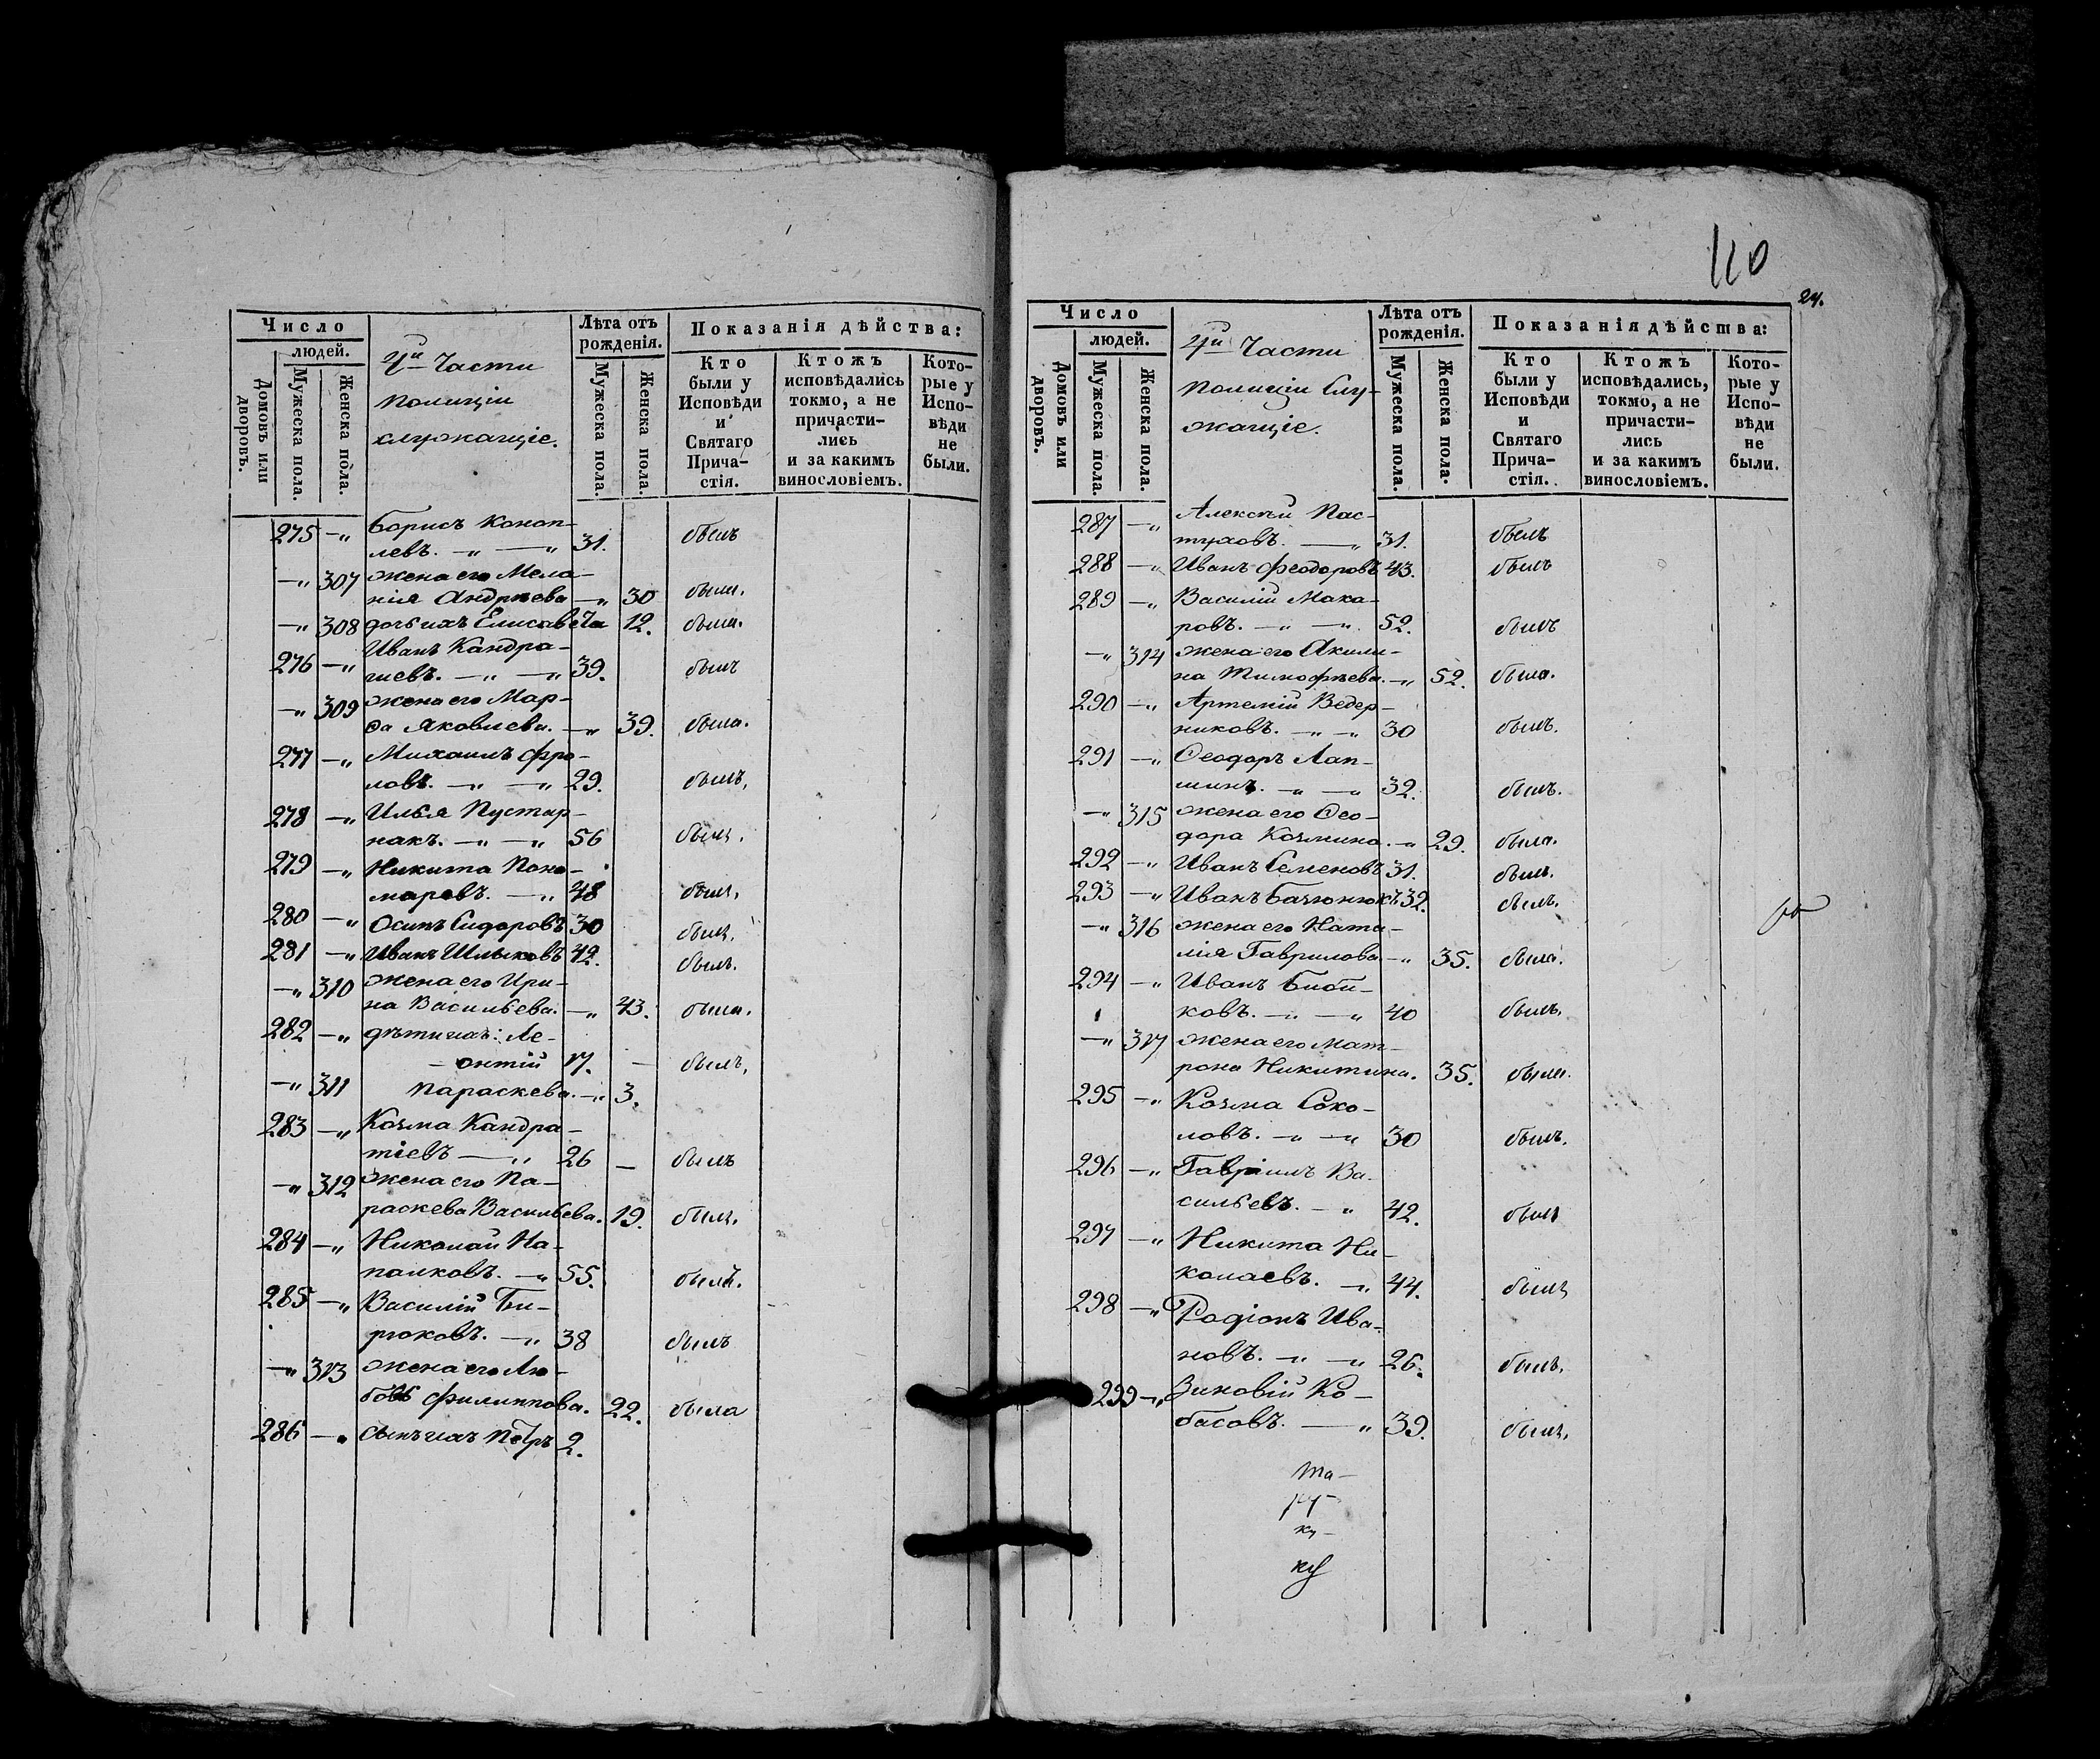 Число
людей.
Домовъ или дворовъ.
Мужеска пола.
Женска пола.
4й Части
полиціи
служащіе.
Лѣта отъ
рожденія.
Мужеска пола.
Женска пола.
Показанія дѣйства:
Кто
были у
Исповѣди
и
Святаго
Прича-
стія.
Ктожъ
исповѣдались
токмо, а не
причасти-
лись
и за какимъ
винословіемъ.
Кото-
рые у
Испо-
вѣди
не
были.
275 —„ Борисъ Коноп-
левъ. —„ —„ 31. былъ
—„ 307 жена его Мела-
нія Андреева —„ 30 была.
—„ 308 дочь ихъ Елисавета 12. была.
276 —„ Иванъ Кандра-
шевъ. —„ —„ 39. былъ
—„ 309 жена его Мар-
ѳа Яковлева. —„ 39. была.
277 —„ Михаилъ Фро-
ловъ. —„ —„ 29. былъ,
278 —„ Илья Пустар-
накъ. —„ —„ 56 былъ.
279 —„ Никита Поно-
маревъ. —„ 48 былъ,
280 —„ Осипъ Сидоровъ 30 былъ.
281 —„ Иванъ Шлыковъ 42. былъ.
—„ 310 жена его Ири-
на Васильева. —„ 43. была.
282 —„ дѣти ихъ: Ле-
онтій 17. — былъ,
—„ 311 Параскева. —„ 3.
283 —„ Козма Кандра-
тіевъ —„ 26 — былъ
—„ 312 жена его Па-
раскева Васильева. 19. была.
284 —„ Николай На-
палковъ. —„ 55. былъ.
285 —„ Василій Би-
рюковъ. —„ 38 былъ
—„ 313 жена его Лю-
бовь Филиппова. 22. была
286 —„ сынъ ихъ Петръ 2.
110
24.
Число
людей.
Домовъ или дворовъ.
Мужеска пола.
Женска пола.
4й Части
полиціи Слу-
жащіе.
Лѣта отъ
рожденія.
Мужеска пола.
Женска пола.
Показанія дѣйства:
Кто
были у
Исповѣди
и
Святаго
Прича-
стія.
Ктожъ
исповѣдались,
токмо, а не
причасти-
лись
и за какимъ
винословіемъ.
Кото-
рые у
Испо-
вѣди
не
были.
287 —„ Алексѣй Пас-
туховъ. —„ 31. былъ
288 —„ Иванъ Феодоровъ 43. былъ
289 —„ Василій Мака-
ровъ. —„ —„ 52. былъ
—„ 314 жена его Акили-
на Тимофѣева. —„ 52. была.
290 —„ Артемій Ведер-
никовъ. —„ —„ 30 былъ.
291 —„ Ѳеодоръ Лап-
шинъ. —„ —„ 32. былъ.
—„ 315 жена его Ѳео-
дора Козмина. —„ 29. была.
292 —„ Иванъ Семеновъ 31. былъ.
293 —„ Иванъ 32. былъ.
—„ 316 жена его Ната-
лія Гаврилова —„ 35. была.
294 —„ Иванъ Биби-
ковъ. —„ —„ 40 былъ.
—„ 317 жена его Мат-
рона Никитина. 35. была.
295 —„ Козма Соко-
ловъ. —„ —„ 30 былъ.
296 —„ Гавріилъ Ва-
сильевъ. —„ 42. былъ
297 —„ Никита Ни-
колаевъ. —„ 44. былъ
298 —„ Родіонъ Ива-
новъ. —„ —„ 26. былъ.
299 —„ Зиновій Ко-
басовъ. —„ 39. былъ.